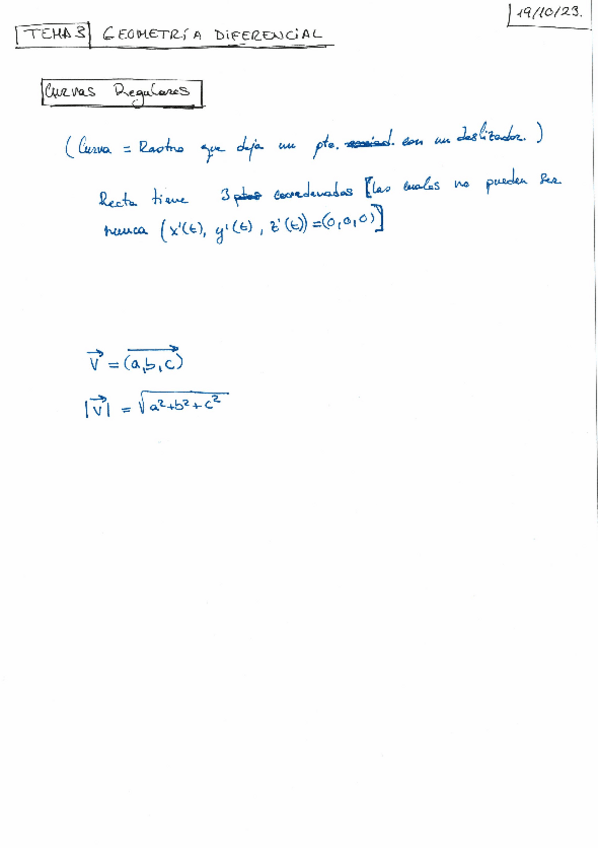 19/10/23.
TEMA 3 GEOMETRÍA DIFERENCIAL
Curvas Regulares
(Curva = Rastro que deja un pto. con un deslizador.)
Recta tiene 3 ptos coordenadas [las cuales no pueden ser
nunca (x'(t), y'(t), z'(t)) = (0,0,0)]
v⃗ = (a,b,c)
|v⃗| = √a²+b²+c²